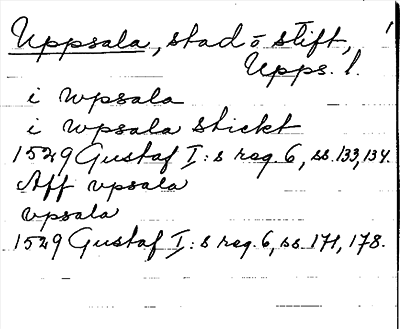 Uppsala, stad o stift, 1
Upps. l.
i wpsala
i wpsala stickt
1529 Gustaf I:s reg. 6, ss. 133, 134.
Aff vpsala
vpsala
1529 Gustaf I:s reg. 6, ss. 171, 178.